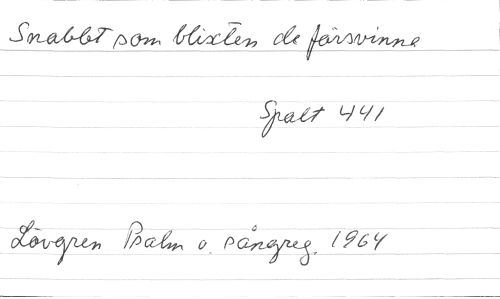 Snabbt som blixten de försvinna
Spalt 441
Lövgren Psalm o. sångreg. 1964